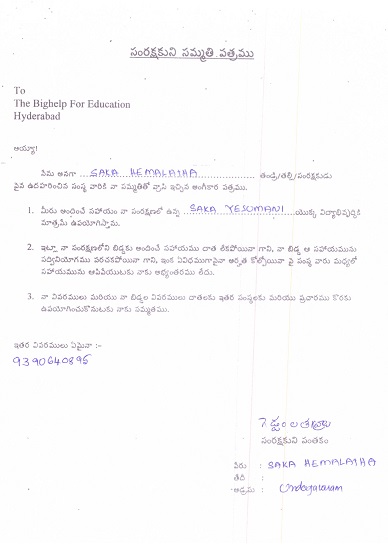 సంరక్షకుని సమ్మతి పత్రము
To
The Bighelp For Education
Hyderabad
అయ్యా!
నేను అనగా ...SAKA HEMALATHA........................ తండ్రి/తల్లి/సంరక్షకుడు
పైన ఉదహరించిన సంస్థ వారికి నా సమ్మతితో వ్రాసి ఇచ్చిన అంగీకార పత్రము.
1. మీరు అందించే సహాయం నా సంరక్షణలో ఉన్న ...SAKA YESUMANI......యొక్క విద్యాభివృద్ధికి
మాత్రమే ఉపయోగిస్తాను.
2. ఇట్లా నా సంరక్షణలోని బిడ్డకు అందించే సహాయము దాత లేకపోయినా గాని, నా బిడ్డ ఆ సహాయమును
సద్వినియోగము పరచకపోయినా గాని, ఇంక ఏవిధముగానైనా అర్హత కోల్పోయినా పై సంస్థ వారు మధ్యలో
సహాయమును ఆపివేయుటకు నాకు అభ్యంతరము లేదు.
3. నా వివరములు మరియు నా బిడ్డల వివరములు దాతలకు ఇతర సంస్థలకు మరియు ప్రచారము కొరకు
ఉపయోగించుకొనుటకు నాకు సమ్మతము.
ఇతర వివరములు ఏమైనా :-
9390640895
సంరక్షకుని సంతకం
పేరు : SAKA HEMALATHA
తేది :
అడ్రసు :